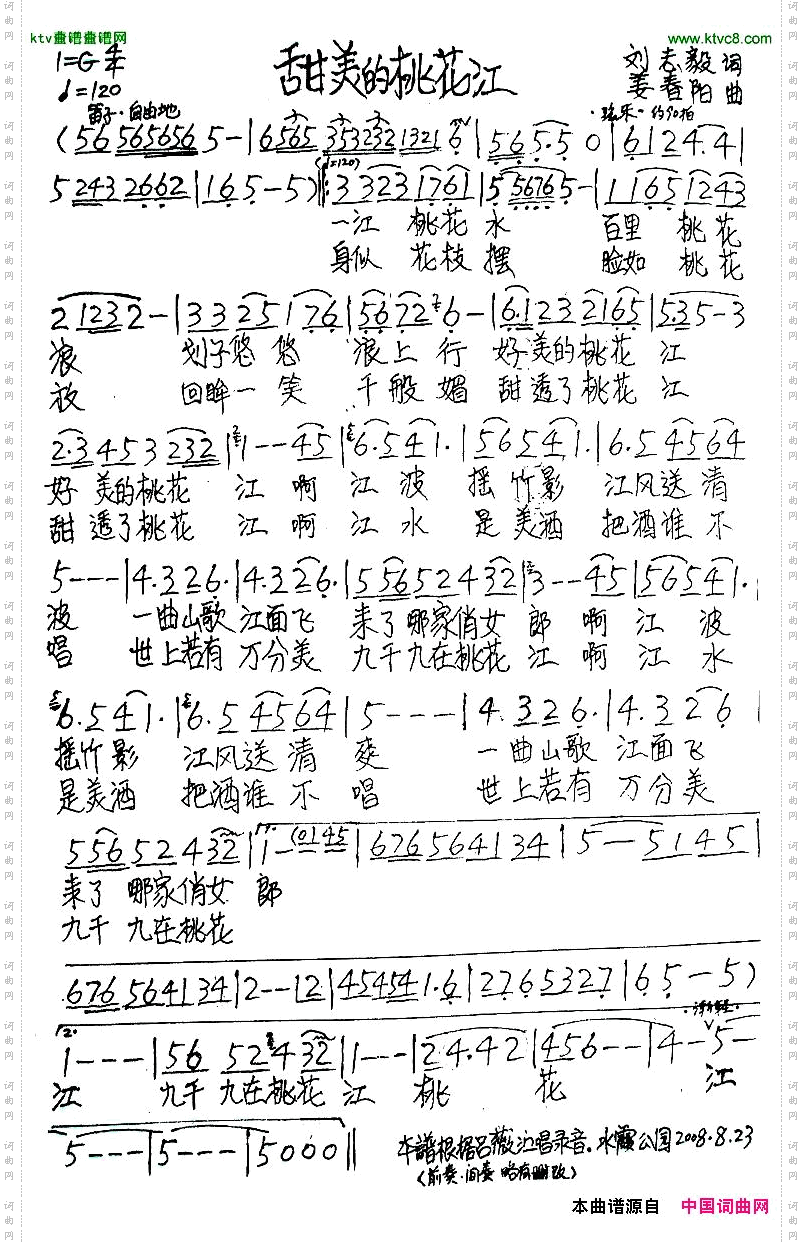 ktv盡谱盡谱网
www.ktvc8.com
甜美的桃花江
1=G
♩=120
刘志毅 词
姜春阳 曲
笛子·自由地
(56 565656 5 - | 6 565 353232 1321 6 | 5 6 5. 5 0 | 6 1 2 4. 4 |
5 243 2662 | 1 6 5 - 5) ‖: 3 323 1761 | 5 5676 5 - | 1 165 1243
一江 桃花 水 百里 桃花
身似 花枝 摆 脸如 桃花
2 1232 2 - | 33 25 1 76 | 56 72 6 - | 6.123 2165 | 5.35 - 3
浪 划子悠悠 浪上行 好美的桃花 江
放 回眸一笑 千般媚 甜透了桃花 江
2.3 453 232 | 1 - - 45 | 6.5 41. | 565 41. | 6.5 4564
好 美的桃花 江 啊 江 波 摇竹影 江风送清
甜 透了桃花 江 啊 江 水 是美酒 把酒谁不
5 - - - | 4.326. | 4.326. | 556 52 432 | 3 - - 45 | 565 41. |
波 一曲山歌 江面飞 来了哪家俏女 郎 啊 江 波
唱 世上若有 万分美 九千九在桃花 江 啊 江 水
6.5 41. | 6.5 4564 | 5 - - - | 4.326. | 4.326 |
摇竹影 江风送清 爽 一曲山歌 江面飞
是美酒 把酒谁不 唱 世上若有 万分美
556 52 432 | 1. 1 - (0145 | 676 564134 | 5 - - 5145 |
来了 哪家俏女 郎
九千 九在桃花
676 564134 | 2 - - 12 | 45454 1.6 | 2765327 | 65 - 5)
2. 1 - - - | 56 52 432 | 1 - - - | 24.42 | 456 - - | 4 - 5 -
江 九千 九在桃花 江 桃 花 江
5 - - - | 5 - - - | 5000 ‖
本谱根据吕薇演唱录音。水霞公园2008.8.23
(前奏·间奏 略有删改)
本曲谱源自 中国词曲网